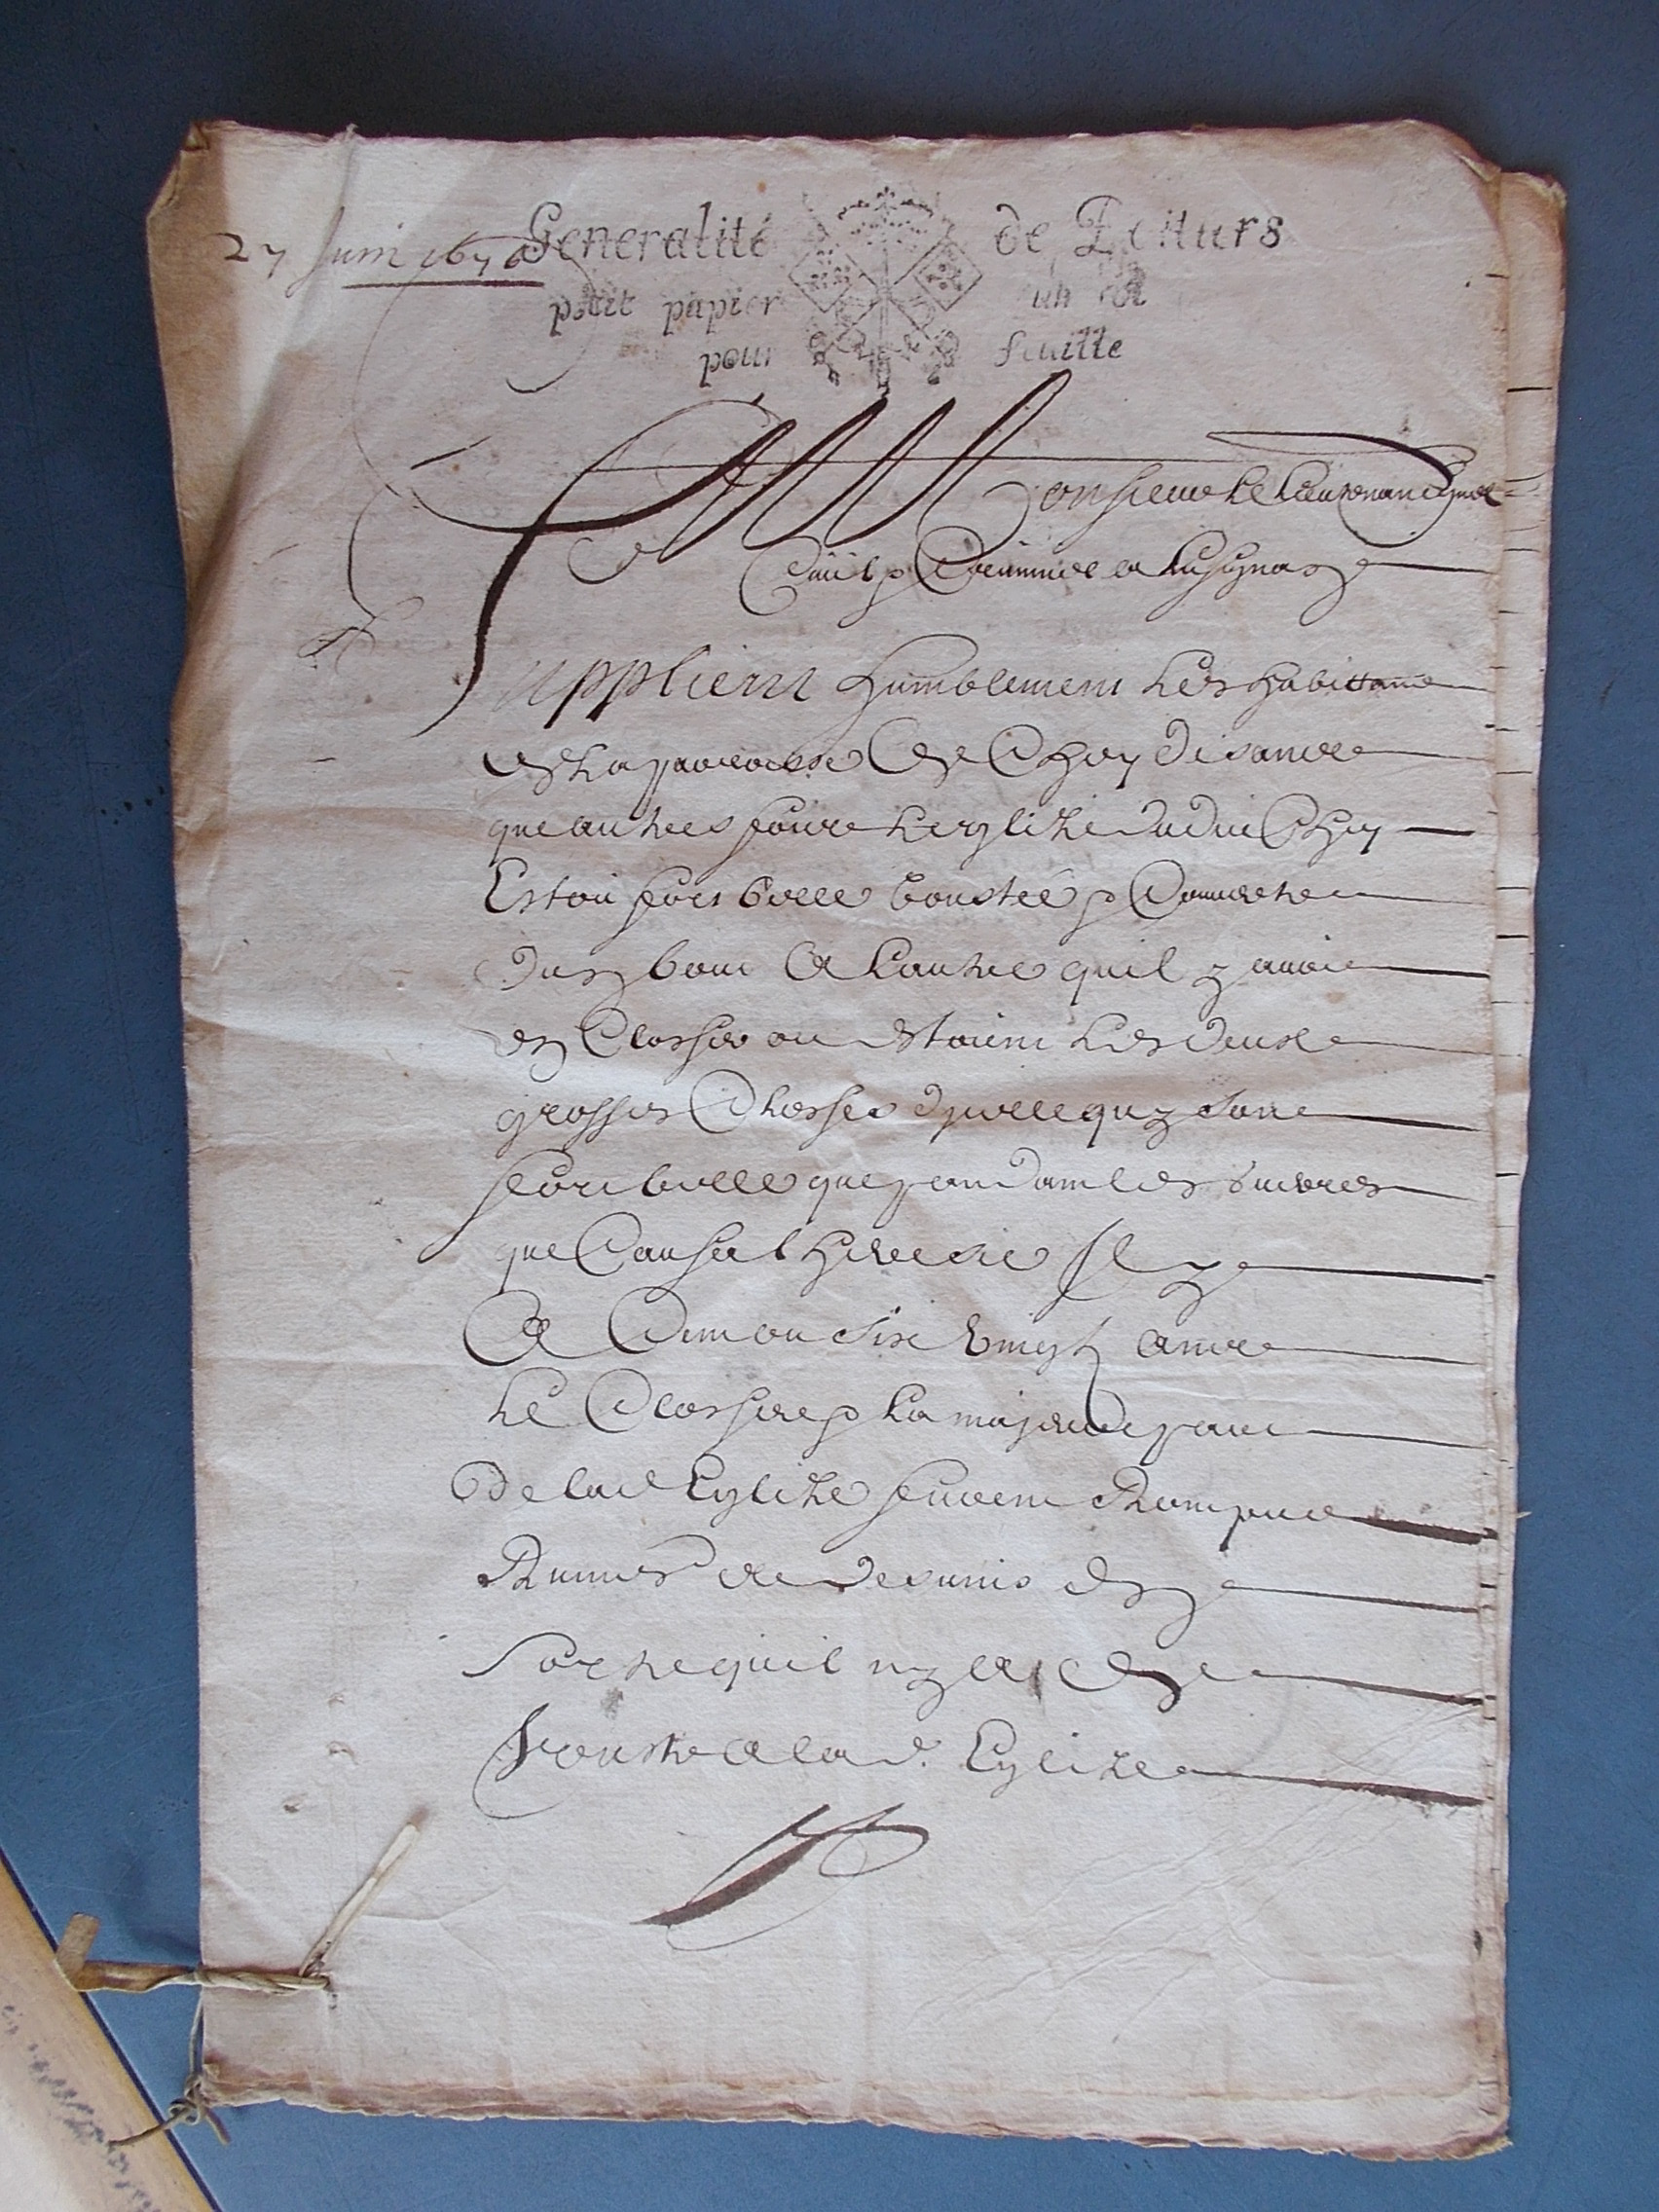 27 Juin 1676
Generalité de Poitiers
petit papier un sol
pour feuille
Monsieur Le Lieutenant gnal
Civil & Criminel a Lusignan
Supplient humblement Les habittans
de La parroisse de Chey disans
que autres foure Leglize dudit Chey
Estoit fort belle voustée & Couverte
dun bout a Lautre quil y avoit
un Clocher ou estoient Les deux
grosses Cloches quy sont
fort belle que pandant les guerres
que Causa lheresie Il y
a Cent ou six vingt ans
Le Clocher & La majeure part
De lad Eglize furent Rompus
Ruines et desunis en
Sorte quil ny a en
voute a lad. Eglize